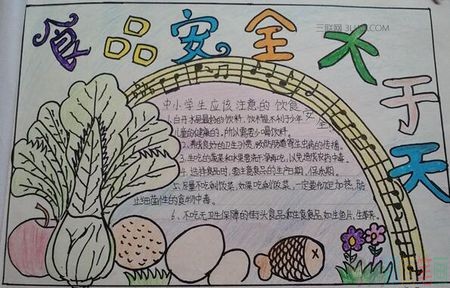 食品安全大于天
三联网 3LIAN.COM
中小学生应该注意的饮食安全
1.白开水是最好的饮料,饮料
儿童的健康的,所以需要少喝饮料。
2、养成良好的卫生习惯,
3、生吃的蔬菜和水果要洗干净
4、选择食品时,要注意食品的生产日期、保质期。
5、尽量不吃剩饭菜,如果吃剩饭菜,一定要彻底加热,防
止细菌性的食物中毒。
6、不吃无卫生保障的街头食品和生食食品,如生鱼片,生